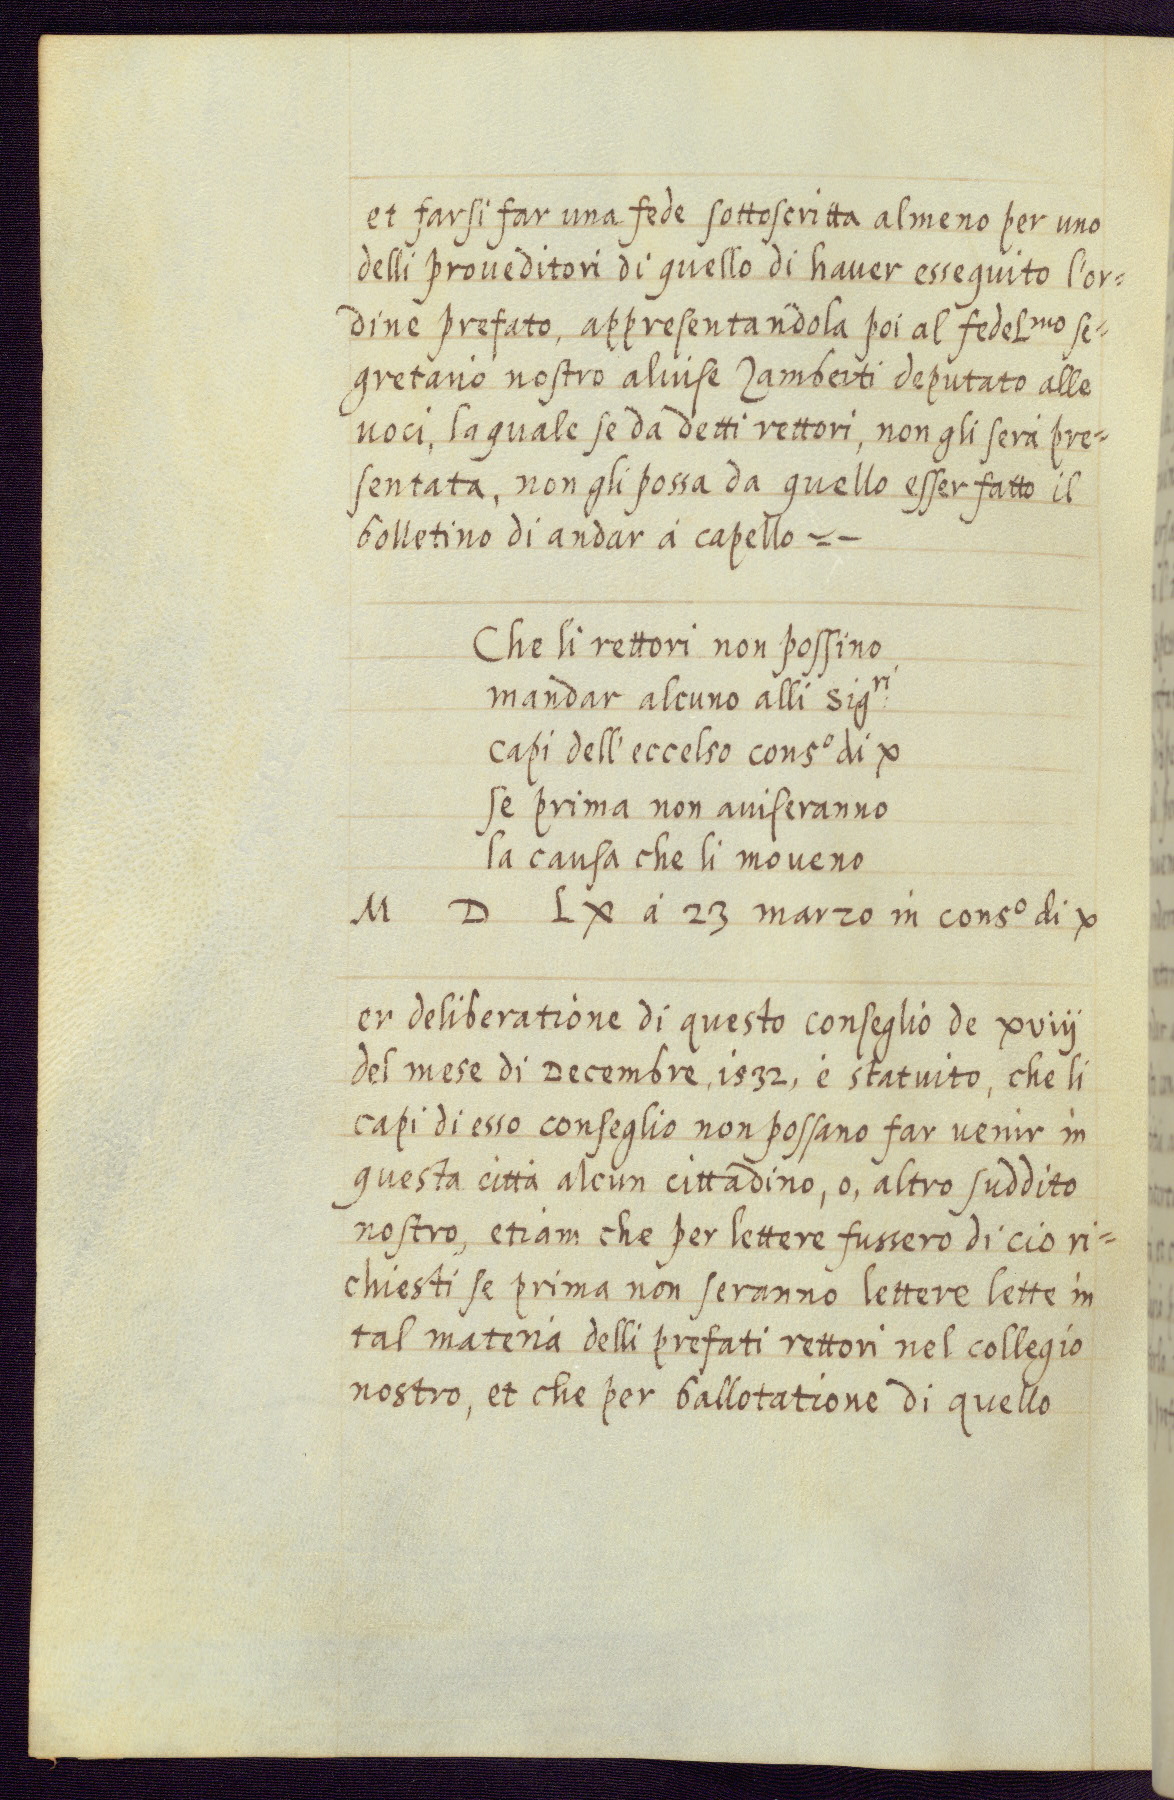 et farsi far una fede sottoscritta almeno per uno
delli proueditori di quello di hauer essequito l'or=
dine prefato, appresentandola poi al fedel.mo se=
gretario nostro aluise Zamberti deputato alle
uoci, laquale se da detti rettori, non gli serà pre=
sentata, non gli possa da quello esser fatto il
bolletino di andar à capello =-
Che li rettori non possino
mandar alcuno alli sigri
capi dell' eccelso conso di x
se prima non auiseranno
la causa che li moueno
M D LX à 23 marzo in conso di x
er deliberatione di questo conseglio de xviij
del mese di Decembre, 1532, è statuito, che li
capi di esso conseglio non possano far uenir in
questa città alcun cittadino, o, altro suddito
nostro, etiam che per lettere fussero di cio ri=
chiesti se prima non seranno lettere lette in
tal materia delli prefati rettori nel collegio
nostro, et che per ballotatione di quello